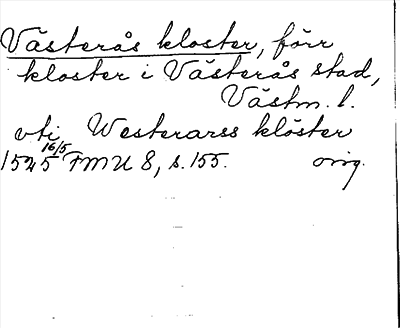 Västerås kloster, förr
kloster i Västerås stad,
Västm. l.
vti Westerarss klöster
16/5
1525 FMU 8, s. 155. orig.